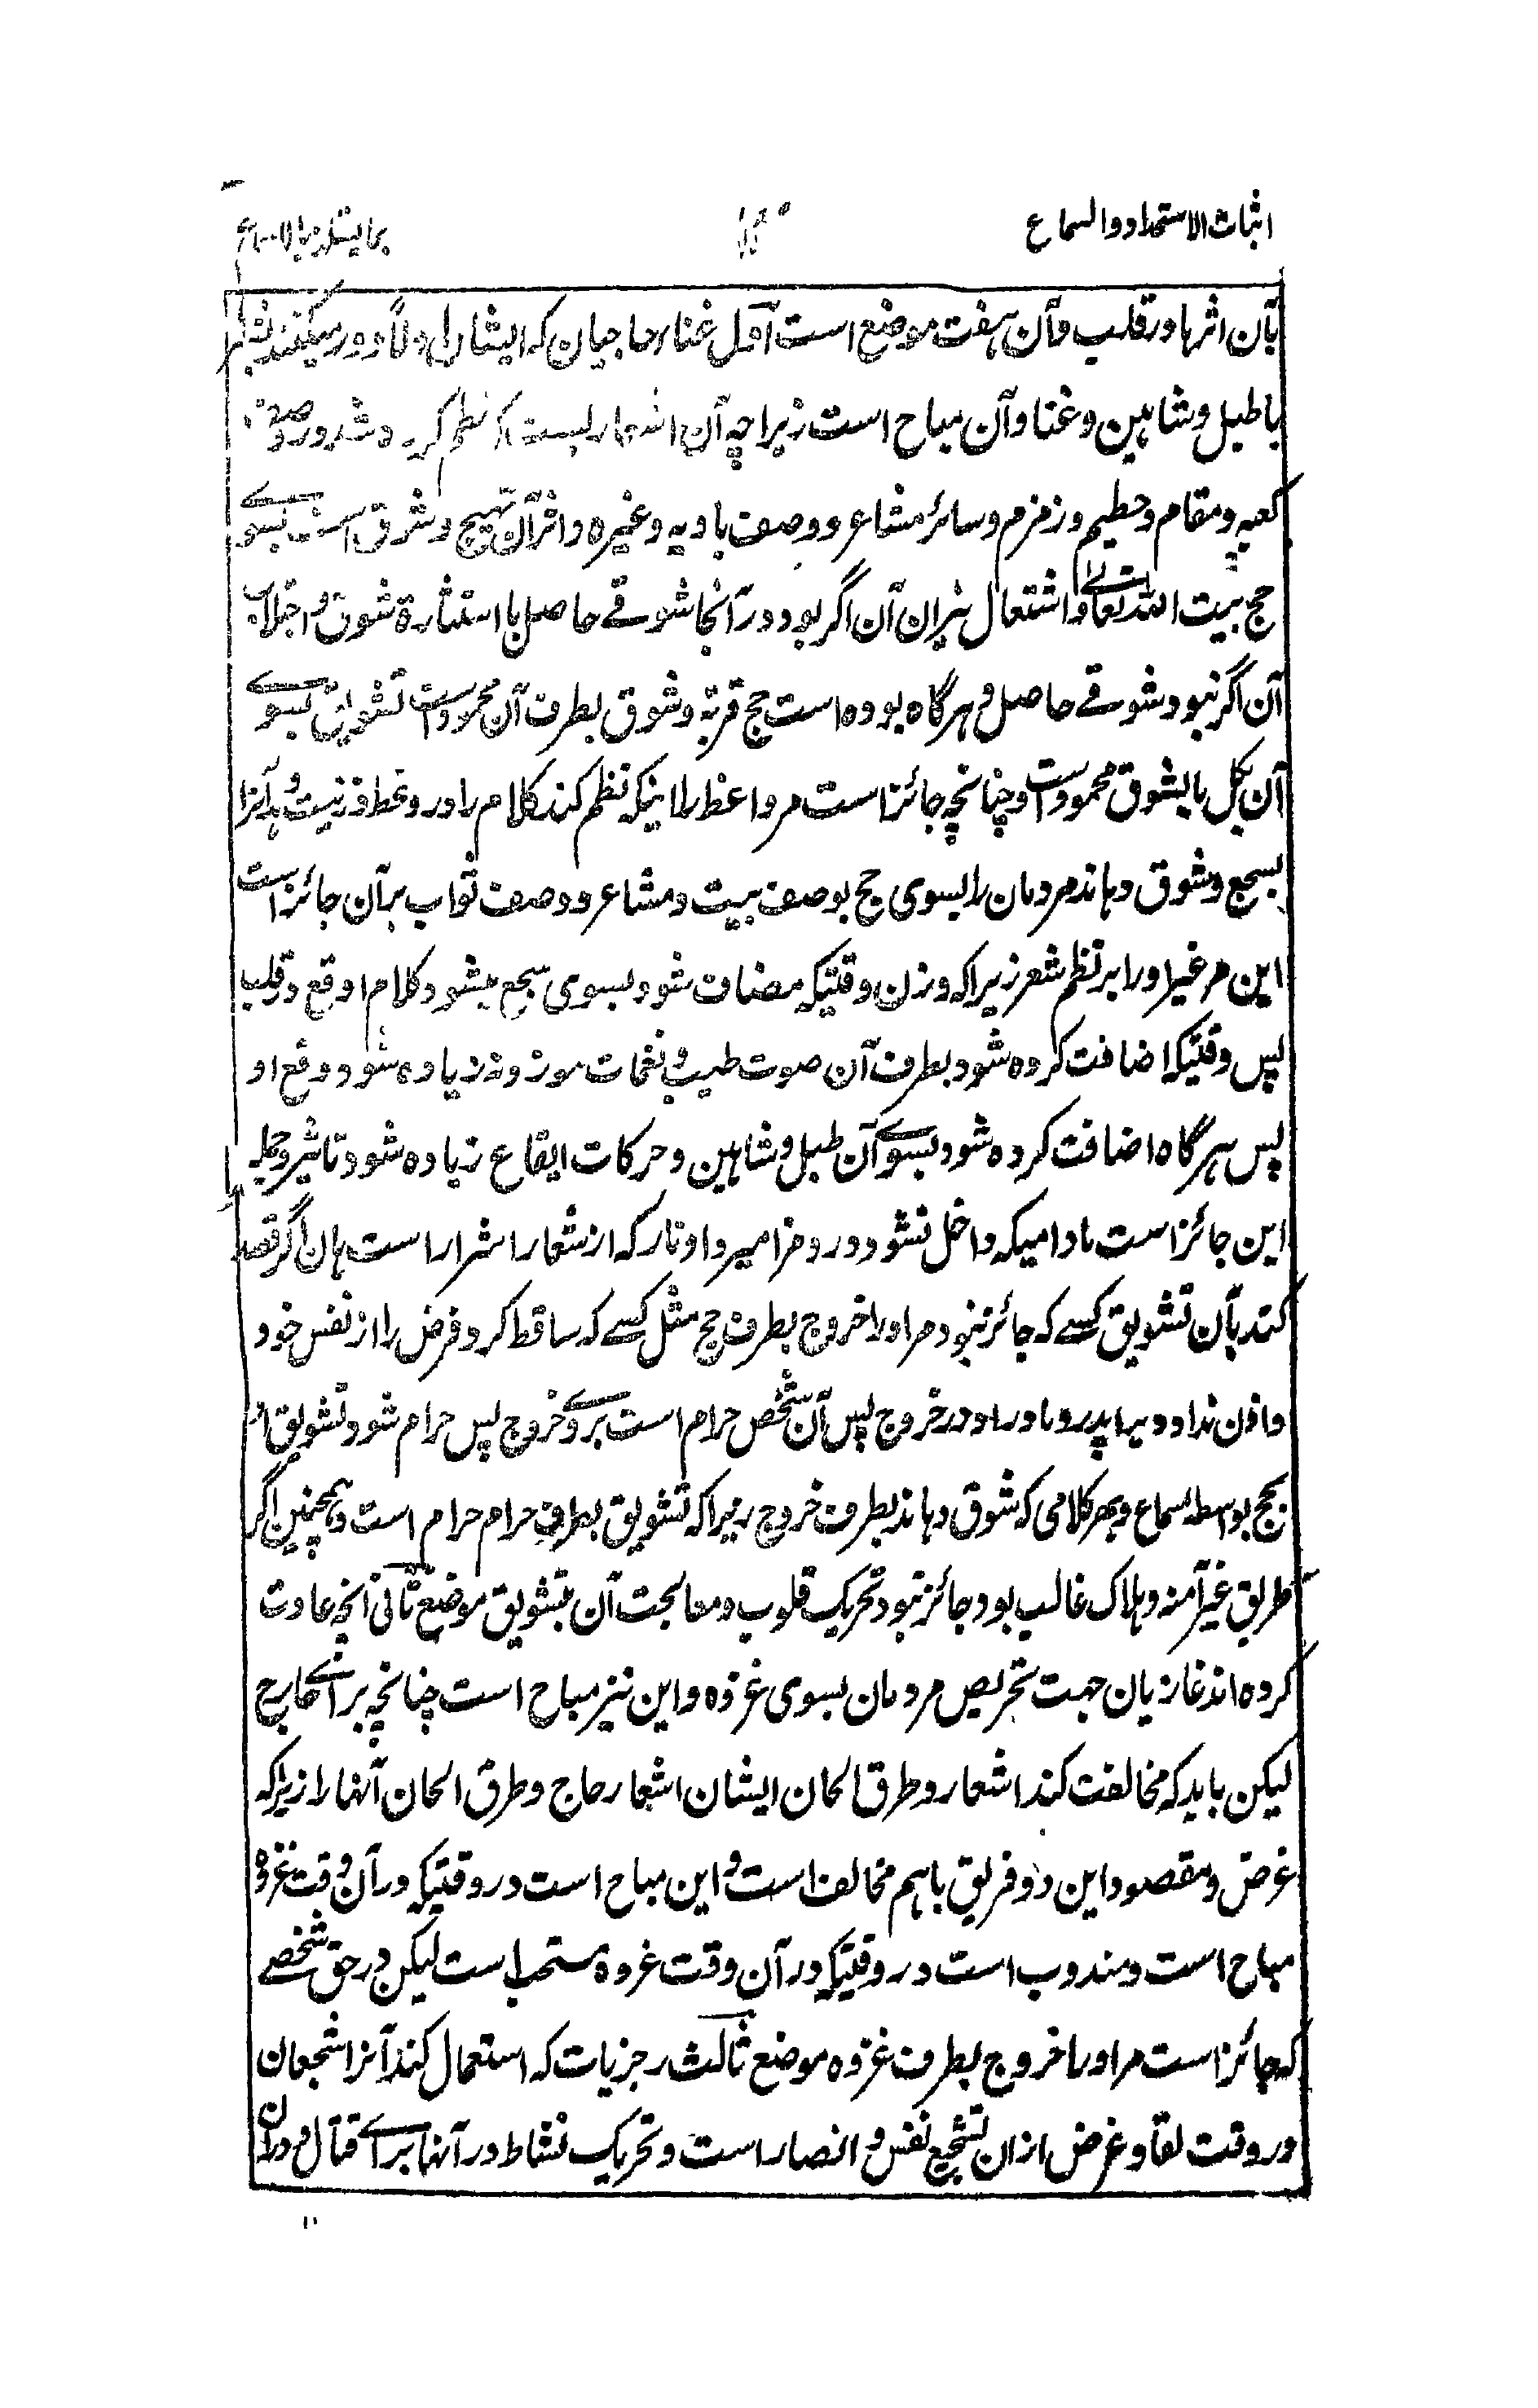 اثبات الاستمداد والسماع
بآن اثرها در قلب و آن هفت موضع است اول غناء حاجیان که ایشان اولاً دور میکنند
با طبل و شاهین و غنا و آن مباح است زیراچه آن اشعاریست که نظم کرده شد در صفت
کعبه و مقام و حطیم و زمزم و سائر مشاعر و وصف بادیه و غیره و اثر آن تهیج و شوق است بسوے
حج بیت الله تعالے و اشتعال نیران آن اگر بود در آنجا شوقے حاصل یا استثارة شوق و اجتلاب
آن اگر نبود شوقے حاصل و هرگاه بوده است حج قربة و شوق بطرف آن محمود است تشویق بسوے
آن بکل ما یشوق محمود است و چنانچه جائز است مر واعظ را اینکه نظم کند کلام را در وعظ و زینت دهد آنرا
بسجع و شوق دهاند مردمان را بسوی حج بوصف بیت و مشاعر و وصف ثواب بر آن جائز است
این مر غیر او را بر نظم شعر زیراکه وزن وقتیکه مضاف شود بسوی سجع میشود کلام اوقع در قلب
پس وقتیکه اضافت کرده شود بطرف آن صوت طیب و نغمات موزونه زیاده شود وقع او
پس هرگاه اضافت کرده شود بسوے آن طبل و شاهین و حرکات ایقاع زیاده شود تاثیر و جمله
این جائز است مادامیکه داخل نشود در و مزامیر و اوتار که از شعار اشرار است هان اگر قصد
کند بآن تشویق کسے که جائز نبود مر او را خروج بطرف حج مثل کسے که ساقط کرد فرض را از نفس خود
و اذن نداد ویرا پدر و مادر او در خروج پس آن شخص حرام است بروے خروج پس حرام شود تشویق او
بحج بواسطه سماع و بهر کلامی که شوق دهاند بطرف خروج زیراکه تشویق بطرف حرام حرام است و همچنین اگر
طریق غیر آمنه و هلاک غالب بود جائز نبود تحریک قلوب و معالجت آن بتشویق موضع ثانی آنچه عادت
کرده اند غازیان جهت تحریص مردمان بسوی غزوه و این نیز مباح است چنانچه براے حاج
لیکن باید که مخالفت کند اشعار و طرق الحان ایشان اشعار حاج و طرق الحان آنها را زیراکه
غرض و مقصود این دو فریق باهم مخالف است و این مباح است در وقتیکه در آن وقت غزوه
مباح است و مندوب است در وقتیکه در آن وقت غزوه مستحب است لیکن در حق شخصے
که جائز است مر او را خروج بطرف غزوه موضع ثالث رجزیات که استعمال کند آنرا شجعان
در وقت لقا و غرض ازان تشجیع نفس و انصار است و تحریک نشاط در آنها براے قتال و دران